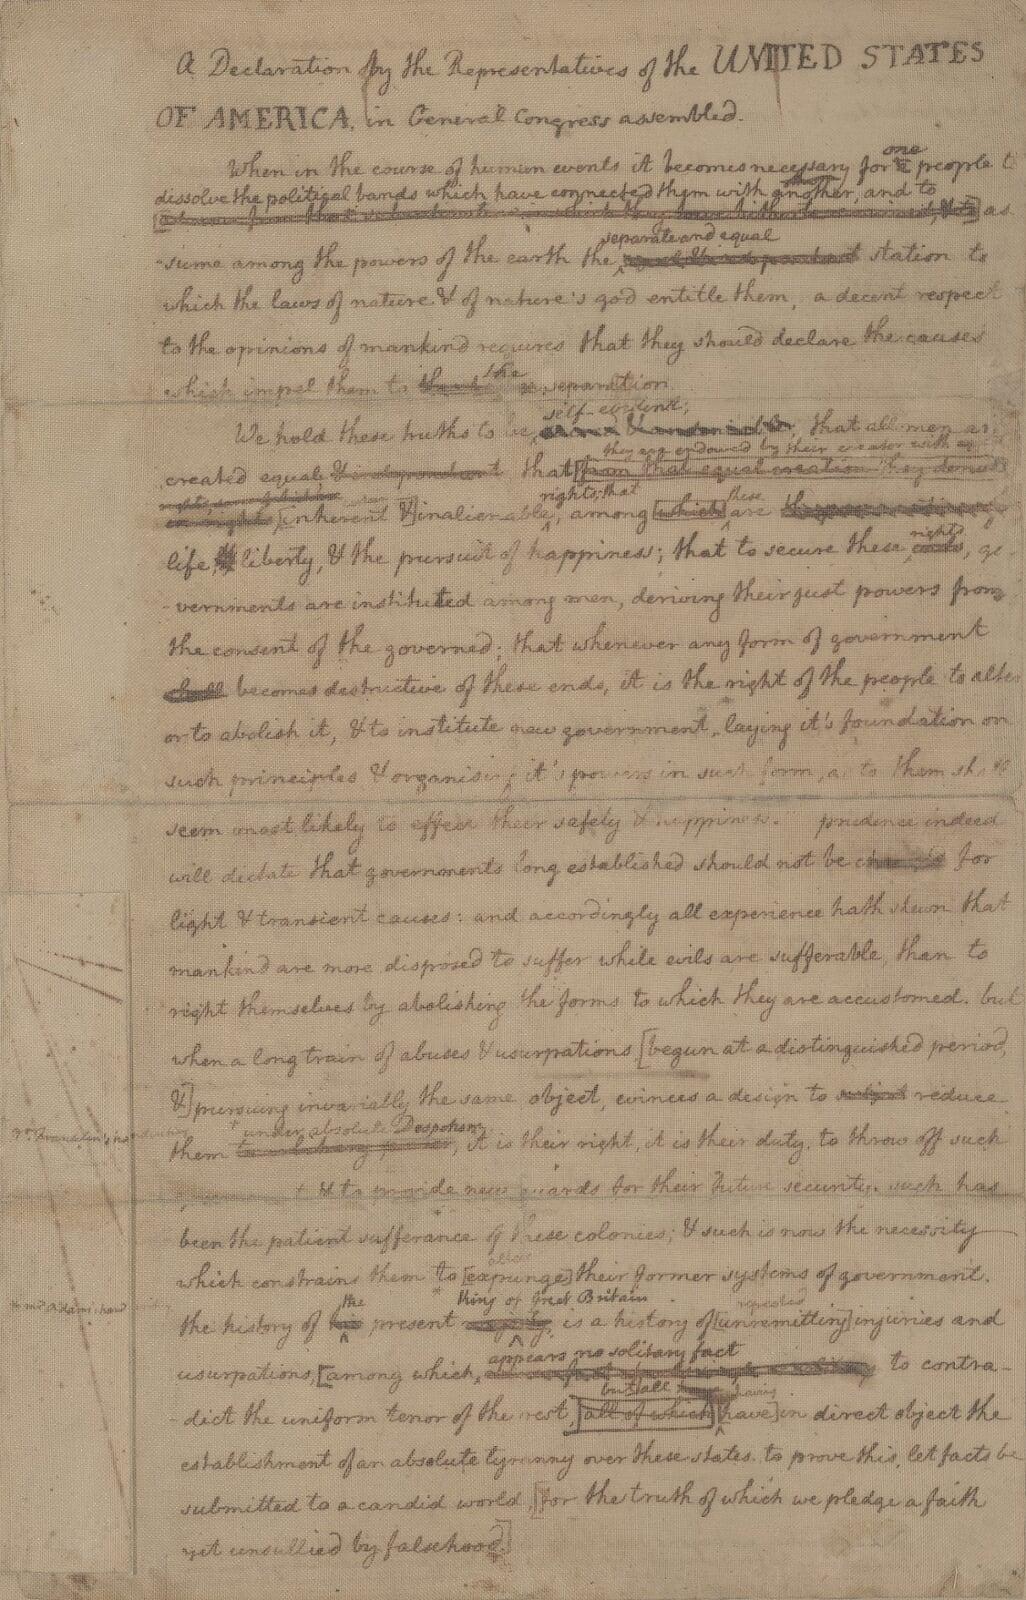 A Declaration by the Representatives of the UNITED STATES
OF AMERICA, in General Congress assembled.
When in the course of human events it becomes necessary for one people to
dissolve the political bands which have connected them with another, and to
as
separate and equal
-sume among the powers of the earth the station to
which the laws of nature & of nature's god entitle them, a decent respect
to the opinions of mankind requires that they should declare the causes
which impel them to the separation.
self-evident;
We hold these truths to be that all men are
they are endowed by their creator with
created equal & independant that [from that equal creation they derive
rights; that
[inherent &] inalienable, among [which] these are
life, liberty, & the pursuit of happiness; that to secure these rights, go-
-vernments are instituted among men, deriving their just powers from
the consent of the governed; that whenever any form of government
shall becomes destructive of these ends, it is the right of the people to alter
or to abolish it, & to institute new government, laying it's foundation on
such principles & organising it's powers in such form, as to them shall
seem most likely to effect their safety & happiness. prudence indeed
will dictate that governments long established should not be changed for
light & transient causes: and accordingly all experience hath shewn that
mankind are more disposed to suffer while evils are sufferable, than to
right themselves by abolishing the forms to which they are accustomed. but
when a long train of abuses & usurpations [begun at a distinguished period,
&] pursuing invariably the same object, evinces a design to subject reduce
* under absolute Despotism
Dr. Franklin's handwriting
them, it is their right, it is their duty, to throw off such
& to provide new guards for their future security. such has
been the patient sufferance of these colonies; & such is now the necessity
alter
which constrains them to [expunge] their former systems of government.
* Mr. Adams' hand writing
the * King of Great Britain repeated
the history of his present majesty, is a history of [unremitting] injuries and
appears no solitary fact
usurpations, [among which, to contra-
but all having
-dict the uniform tenor of the rest, [all of which] [have] in direct object the
establishment of an absolute tyranny over these states. to prove this, let facts be
submitted to a candid world, [for the truth of which we pledge a faith
yet unsullied by falsehood.]